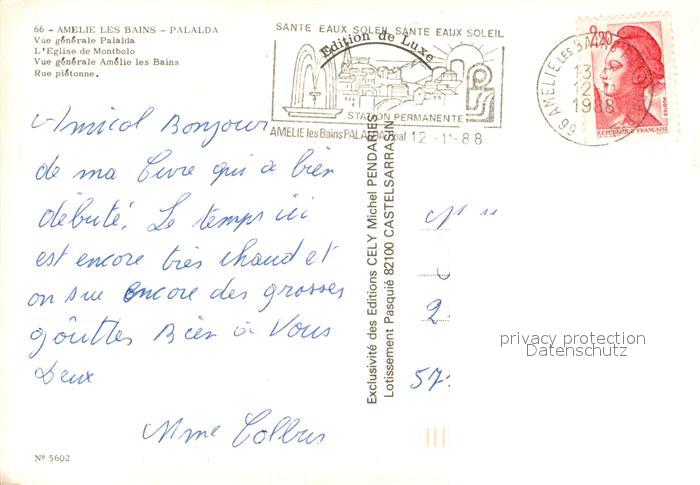 66 - AMELIE LES BAINS - PALALDA
Vue générale Palalda
L'Eglise de Montbolo
Vue générale Amélie les Bains
Rue piétonne.
SANTE EAUX SOLEIL SANTE EAUX SOLEIL
Edition de Luxe
STATION PERMANENTE
AMELIE les Bains PALALDA
12 -11-88
2,20
REPUBLIQUE FRANÇAISE
POSTES
AMELIE LES BAINS
13
12
1988
66
Amical Bonjour
de ma Cure qui a bien
débuté. Le temps ici
est encore très chaud et
on sue encore des grosses
gouttes Bien à Vous
Deux
Mme Collus
Exclusivité des Editions CELY Michel PENDARIES
Lotissement Pasquié 82100 CASTELSARRASIN
2
57
privacy protection
Datenschutz
Nº 5602